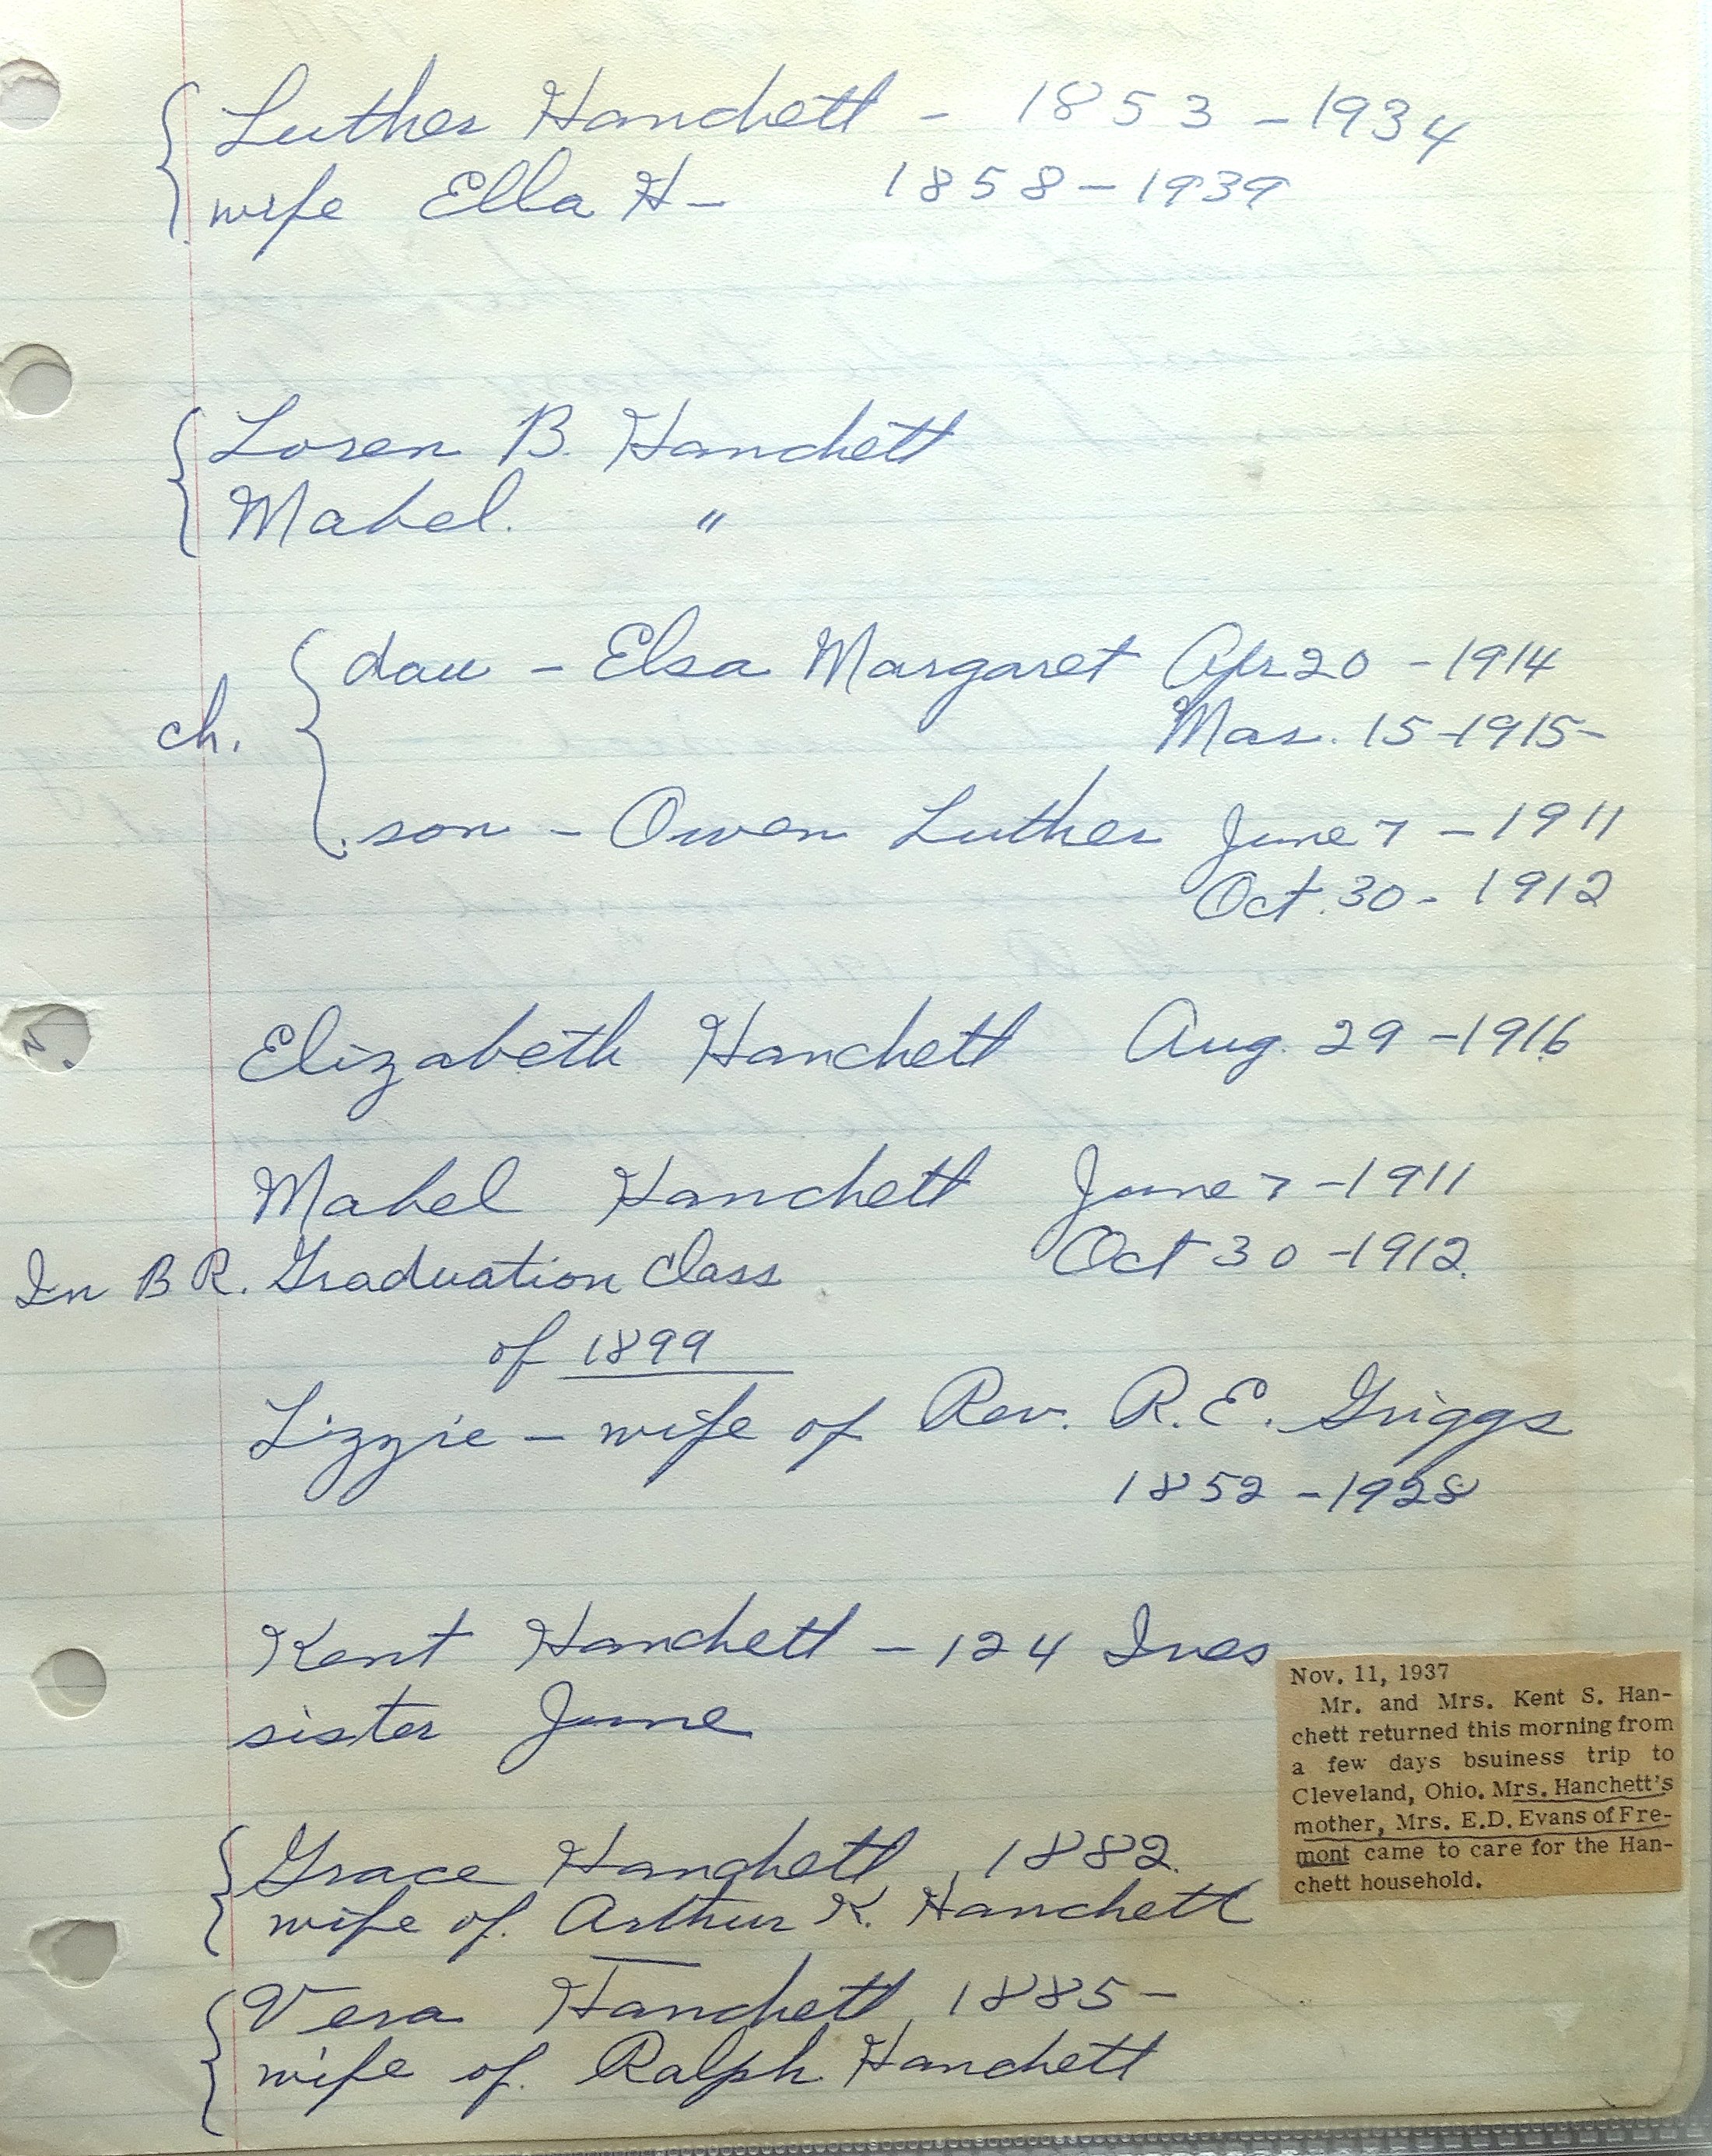 Luther Hanchett - 1853 - 1934
wife Ella H- 1858 - 1939
Loren B. Hanchett
Mabel. "
ch.
dau - Elsa Margaret Apr 20 - 1914
Mar. 15 - 1915 -
son - Owen Luther June 7 - 1911
Oct. 30 - 1912
Elizabeth Hanchett Aug. 29 - 1916
Mabel Hanchett June 7 - 1911
Oct 30 - 1912.
In B R. Graduation Class
of 1899
Lizzie - wife of Rev. R. E. Griggs
1852 - 1928
Kent Hanchett - 124 Ives
sister June
Nov. 11, 1937
Mr. and Mrs. Kent S. Han-
chett returned this morning from
a few days bsuiness trip to
Cleveland, Ohio. Mrs. Hanchett's
mother, Mrs. E.D. Evans of Fre-
mont came to care for the Han-
chett household.
Grace Hanchett, 1882.
wife of. Arthur K. Hanchett
Vera Hanchett, 1885 -
wife of. Ralph Hanchett